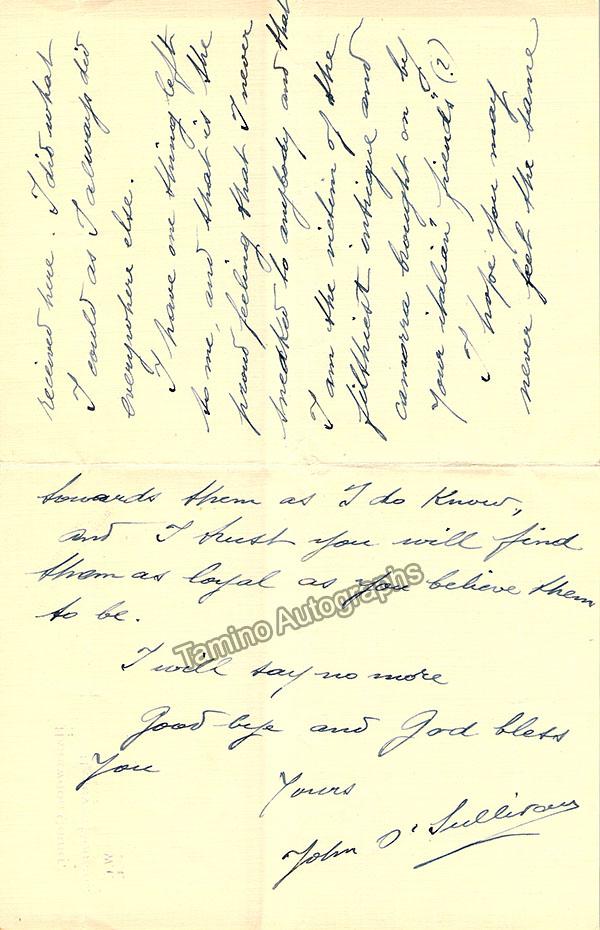 received here. I did what
I could as I always did
everywhere else.
I have one thing left
to me, and that is the
proud feeling that I never
sneaked to anybody and that
I am the victim of the
filthiest intrigue and
camorra brought on by
your italian "friends" (?)
I hope you may
never feel the same
towards them as I do know,
and I trust you will find
them as loyal as you believe them
to be.
I will say no more
Good-bye and God bless
You
Yours
John O'Sullivan
Tamino Autographs